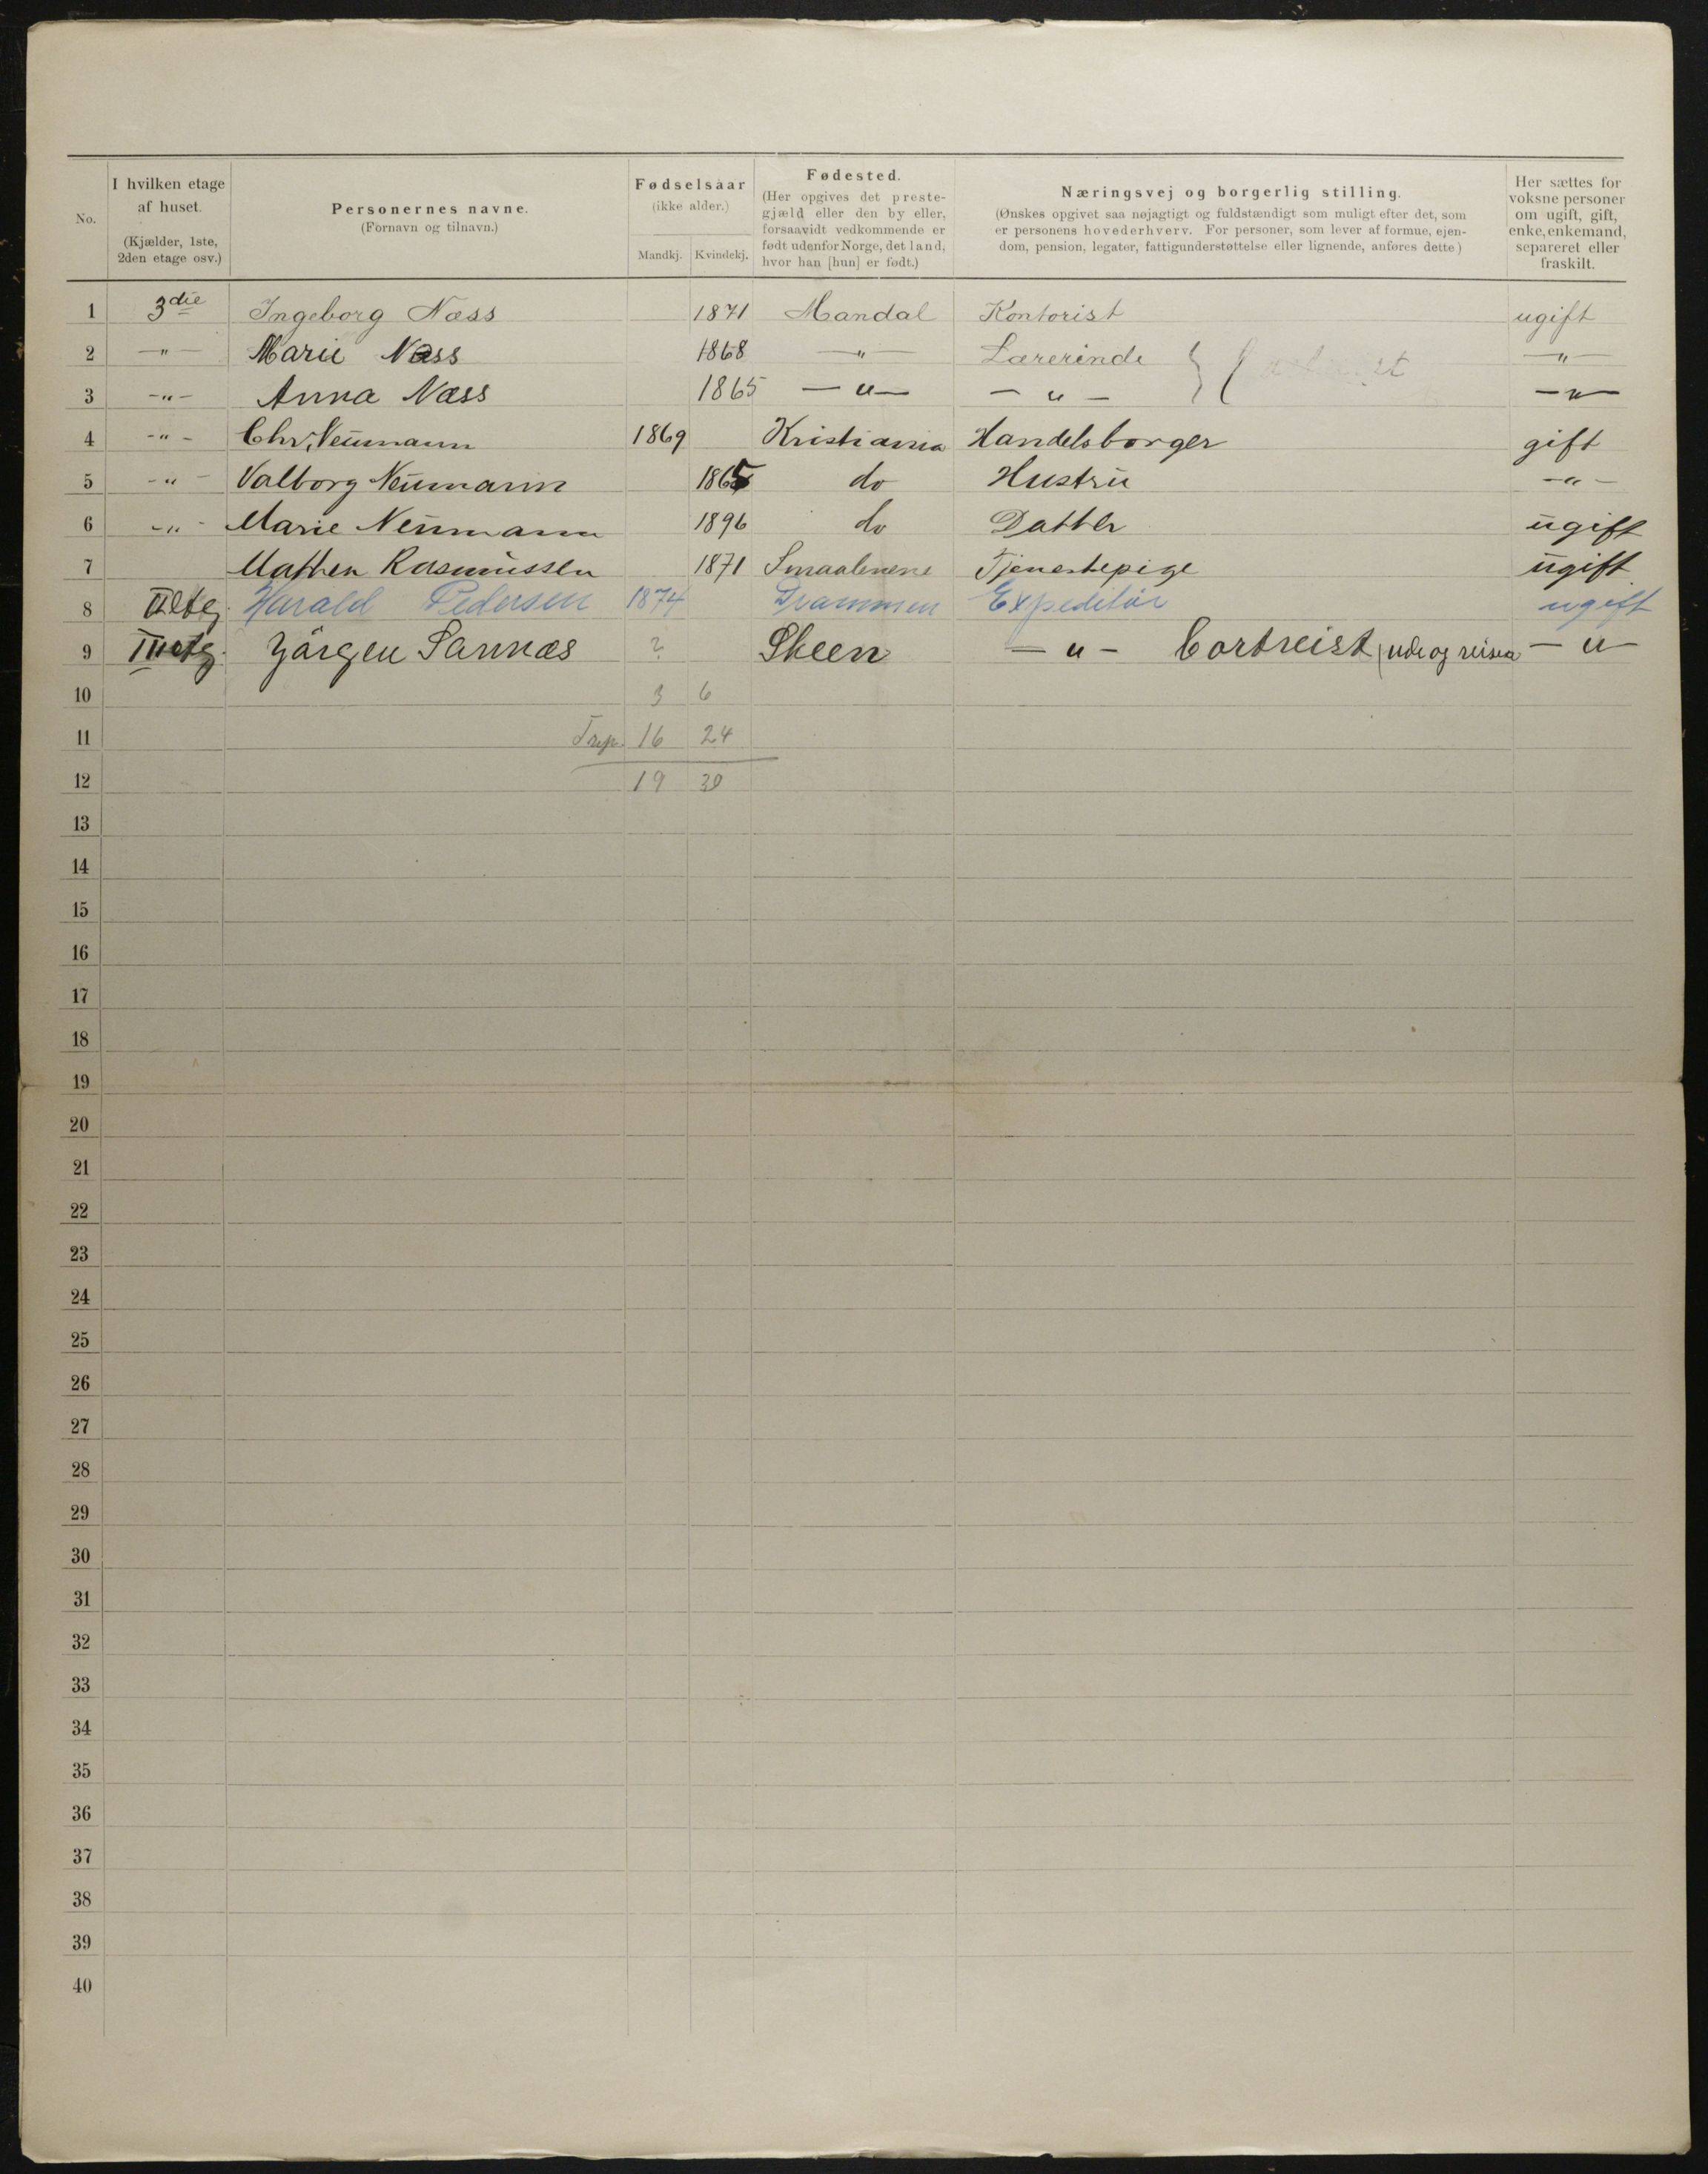 No. I hvilken etage af huset. (Kjælder, 1ste, 2den etage osv.) Personernes navne. (Fornavn og tilnavn.) Fødselsaar (ikke alder.) Mandkj. Kvindekj. Fødested. (Her opgives det prestegjæld eller den by eller, forsaavidt vedkommende er født udenfor Norge, det land, hvor han [hun] er født.) Næringsvej og borgerlig stilling. (Ønskes opgivet saa nøjagtigt og fuldstændigt som muligt efter det, som er personens hovederhverv. For personer, som lever af formue, ejendom, pension, legater, fattigunderstøttelse eller lignende, anføres dette) Her sættes for voksne personer om ugift, gift, enke, enkemand, separeret eller fraskilt.
1 3die Ingeborg Næss 1871 Mandal Kontorist ugift
2 — " — Marie Næss 1868 — " — Lærerinde — " —
3 - " - Anna Næss 1865 — " — — " — — " —
4 - " - Chr. Neumann 1869 Kristiania Handelsborger gift
5 - " - Valborg Neumann 1865 do Hustru - " -
6 - " - Marie Neumann 1896 do Datter ugift
7 Mathea Rasmussen 1871 Smaalenene Tjenestepige ugift
8 II etg. Harald Pedersen 1874 Drammen Expeditør ugift
9 III etg. Jörgen Sannæs ? Skeen — " — bortreist — " —
10 3 6
11 16 24
12 19 30
13
14
15
16
17
18
19
20
21
22
23
24
25
26
27
28
29
30
31
32
33
34
35
36
37
38
39
40